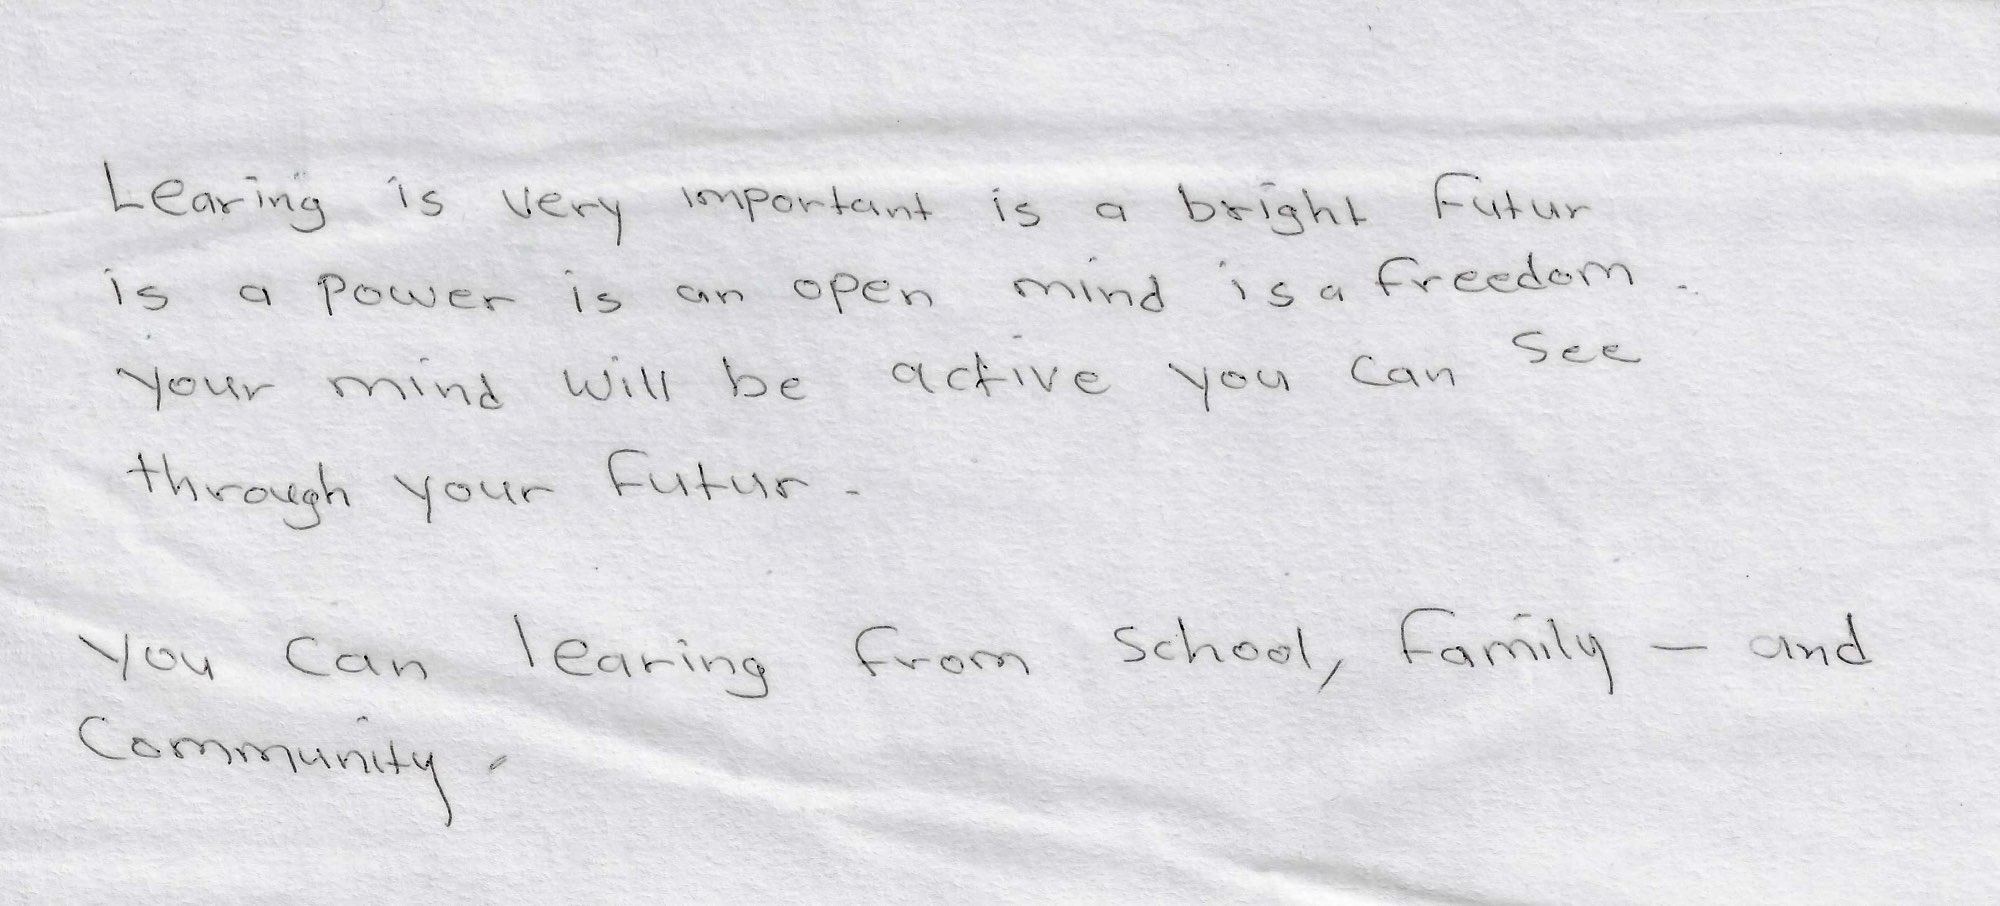 Learing is very important is a bright Futur
is a power is an open mind is a freedom.
your mind will be active you can see
through your Futur.
you can learing from school, Family - and
Community.